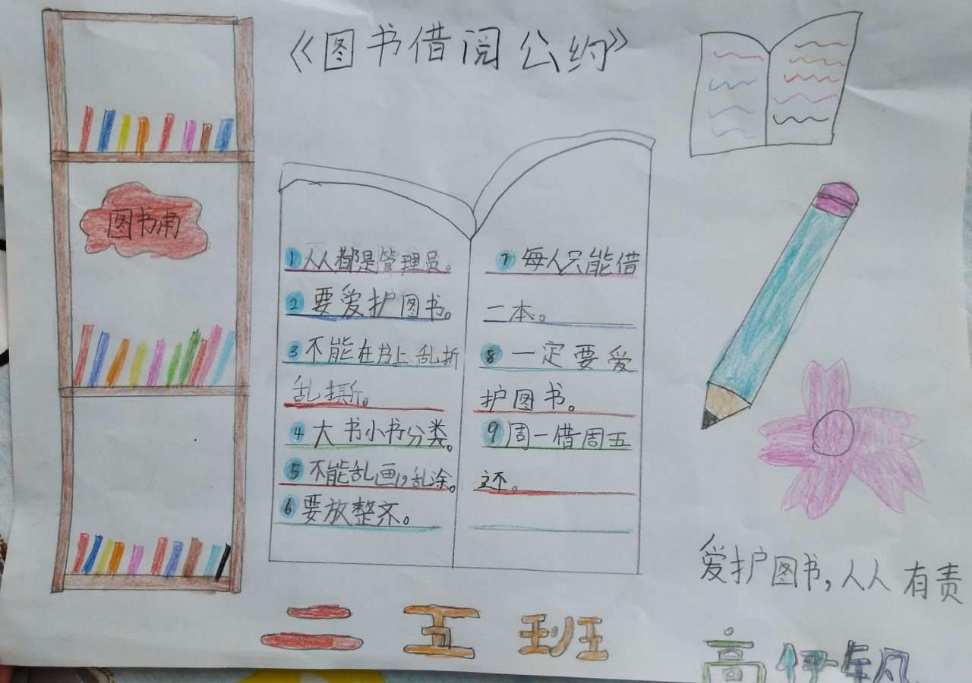 《图书借阅公约》
图书角
1 人人都是管理员。
2 要爱护图书。
3 不能在书上乱折
乱撕。
4 大书小书分类。
5 不能乱画,乱涂。
6 要放整齐。
7 每人只能借
二本。
8 一定要爱
护图书。
9 周一借周五
还。
爱护图书,人人有责
二五班
高伊